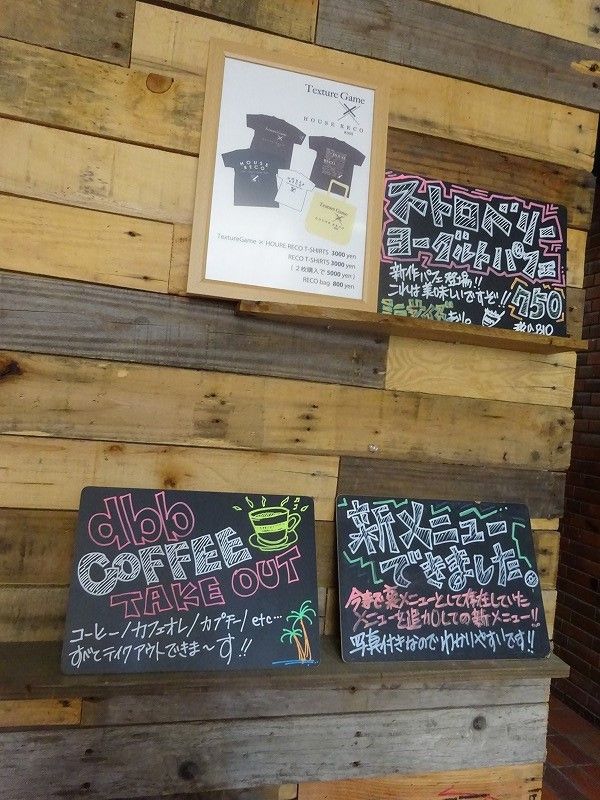 Texture Game
×
HOUSE RECO
HOUSE
RECO
Texture Game
TextureGame × HOURE RECO T-SHIRTS 3000 yen
RECO T-SHIRTS 3000 yen
(2枚購入で 5000 yen)
RECO bag 800 yen
ストロベリー
ヨーグルトパフェ
新作パフェ登場!!
コレは美味しいですぞ!!
750
ミニサイズあり。
dbb
COFFEE
TAKE OUT
コーヒー/カフェオレ/カプチーノ etc…
すべてテイクアウトできま〜す!!
新メニュー
できました。
今まで裏メニューとして存在していた
メニューを追加しての新メニュー!!
写真付きなのでわかりやすいです!!